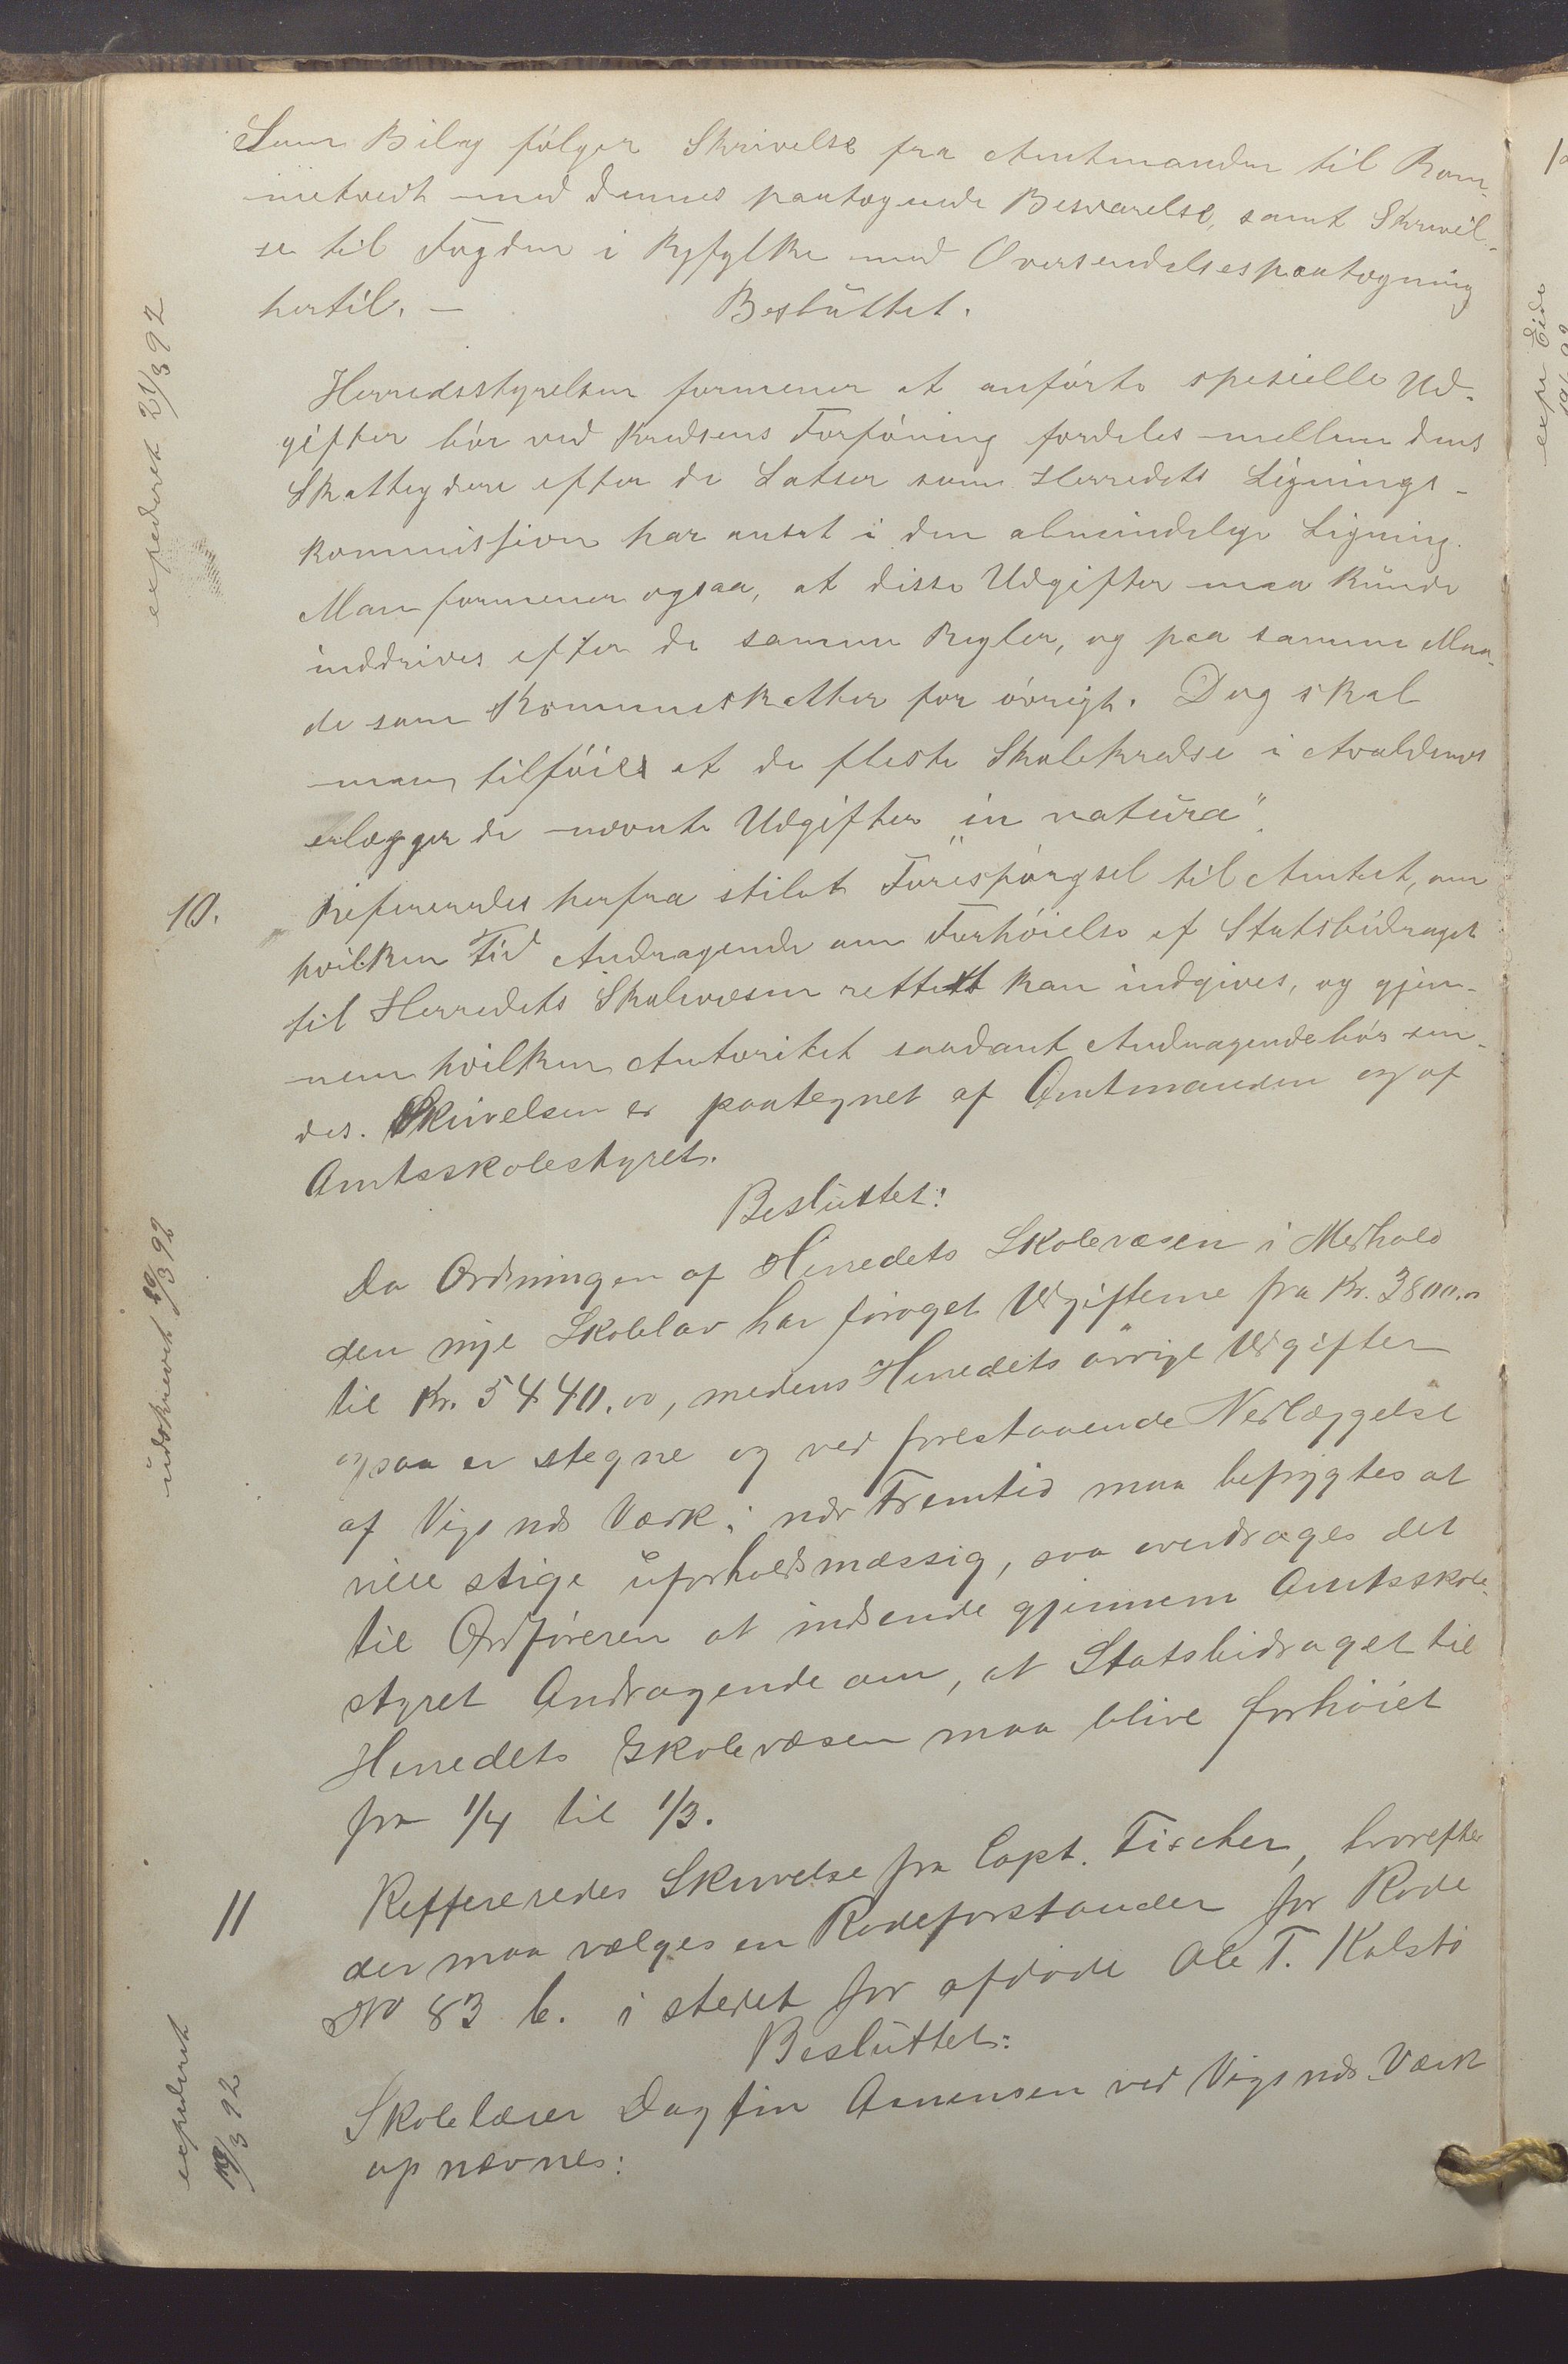 Som Bilag følger Skrivelse fra Amtmanden til Kom-
metvedt med dennes paategnede Besvarelse, samt Skrivel-
se til Fogden i Ryfylke med Oversendelsespaategning
hertil. —
Besluttet.
expederet 21/3 92
Herredsstyrelsen formener at anførte spesielle Ud-
gifter bør ved Kredsens Forføining fordeles mellem dens
Skatteydere efter de Satser som Herredets Lignings-
kommission har ansat i den almindelige Ligning.
Man formener ogsaa, at disse Udgifter maa kunde
inddrives efter de samme Regler, og paa samme Maa-
de som Kommuneskatter for øvrigt. Dog skal
man tilføie at de fleste Skolekredse i Avaldsnes
erlægger de nævnte Udgifter „in natura".
10. Refereredes herfra stilet Forespørgsel til Amtet, om
hvilken Tid Andragende om Forhøielse af Statsbidraget
til Herredets Skolevæsen rettest kan indgives, og gjen-
nem hvilken Autoritet saadant Andragende bør sen-
des. Skrivelsen er paategnet af Amtmanden og af
Amtsskolestyret.
Besluttet:
udskrevet 20/3 92
Da Ordningen af Herredets Skolevæsen i Medhold
den nye Skolelov har forøget Udgifterne fra Kr. 3800.00
til Kr. 5440.00, medens Herredets øvrige Udgifter
ogsaa er stegne og ved forestaaende Nedlæggelse
af Vigsnds Værk i nær Fremtid maa befrygtes at
ville stige uforholdsmæssig, saa overdrages det
til Ordføreren at indsende gjennem Amtsskole-
styret Andragende om, at Statsbidraget til
Herredets Skolevæsen maa blive forhøiet
fra 1/4 til 1/3.
11 Reffereredes Skrivelse fra Capt. Fischer, hvorefter
der maa vælges en Rodeforstander for Rode
No 83 b. i stedet for afdøde Ole T. Kalstø
Besluttet:
expederet
19/3 92
Skolelærer Dagfin Aanensen ved Vigsnds Værk
opnævnes: